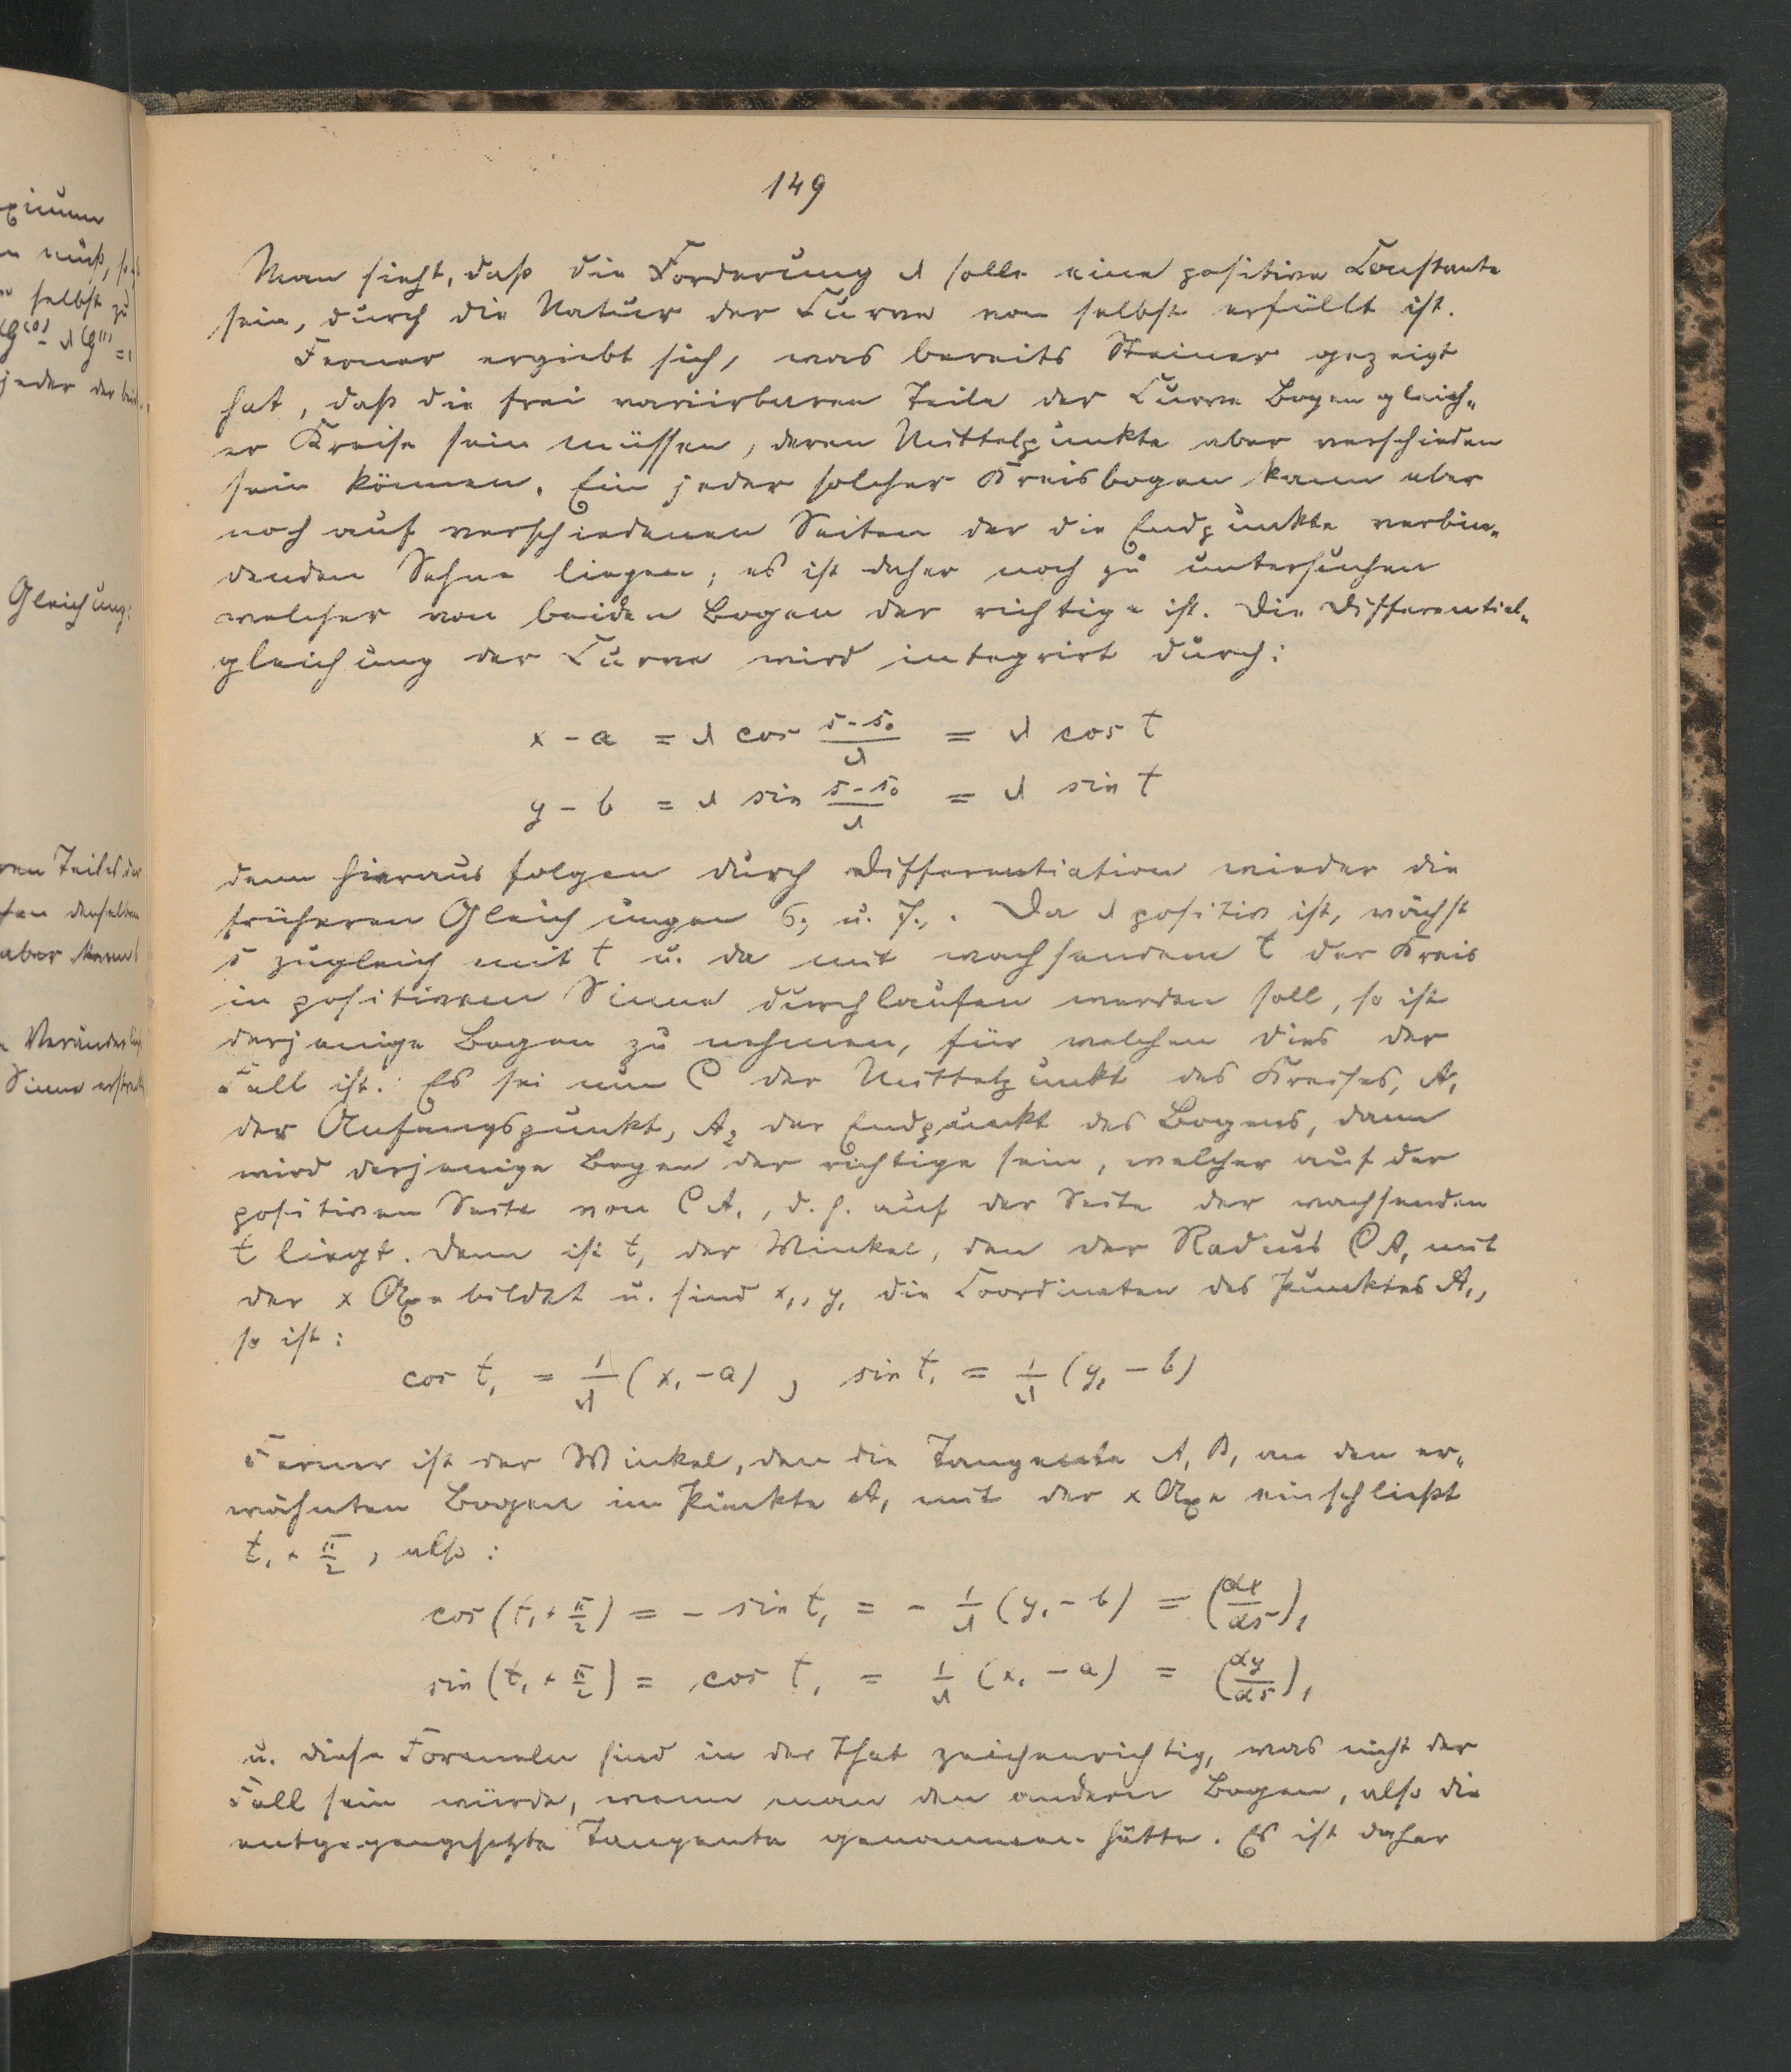 149
Man sieht, daß die Forderung λ solle eine positive Constante
sein, durch die Natur der Curve von selbst erfüllt ist.
Ferner ergiebt sich, was bereits Steiner gezeigt
hat, daß die frei variirbaren Teile der Curve Bogen gleich-
er Kreise sein müssen, deren Mittelpunkte aber verschieden
sein können. Ein jeder solcher Kreisbogen kann aber
noch auf verschiedenen Seiten der die Endpunkte verbin-
denden Sehne liegen; es ist daher noch zu untersuchen
welcher von beiden Bogen der richtige ist. Die Differential-
gleichung der Curve wird integrirt durch:
x - a = λ cos (s - s₀)/λ = λ cos t
y - b = λ sin (s - s₀)/λ = λ sin t
denn hieraus folgen durch Differentiation wieder die
früheren Gleichungen 6., u. 7., . Da λ positiv ist, wächst
s zugleich mit t u. da mit wachsendem t der Kreis
in positivem Sinne durchlaufen werden soll, so ist
derjenige Bogen zu nehmen, für welchen dies der
Fall ist. Es sei nun C der Mittelpunkt des Kreises, A₁
der Anfangspunkt, A₂ der Endpunkt des Bogens, dann
wird derjenige Bogen der richtige sein, welcher auf der
positiven Seite von CA₁, d. h. auf der Seite der wachsenden
t liegt. Denn ist t₁ der Winkel, den der Radius CA₁ mit
der x Axe bildet u. sind x₁, y₁ die Coordinaten des Punktes A₁,
so ist:
cos t₁ = 1/λ (x₁ - a), sin t₁ = 1/λ (y₁ - b)
Ferner ist der Winkel, den die Tangente A₁B₁ an den er-
wähnten Bogen im Punkte A₁ mit der x Axe einschließt
t₁ + π/2, also:
cos (t₁ + π/2) = - sin t₁ = - 1/λ (y₁ - b) = (dx/ds)₁
sin (t₁ + π/2) = cos t₁ = 1/λ (x₁ - a) = (dy/ds)₁
u. diese Formeln sind in der That zeichenrichtig, was nicht der
Fall sein würde, wenn man den andern Bogen, also die
entgegengesetzte Tangente genommen hätte. Es ist daher